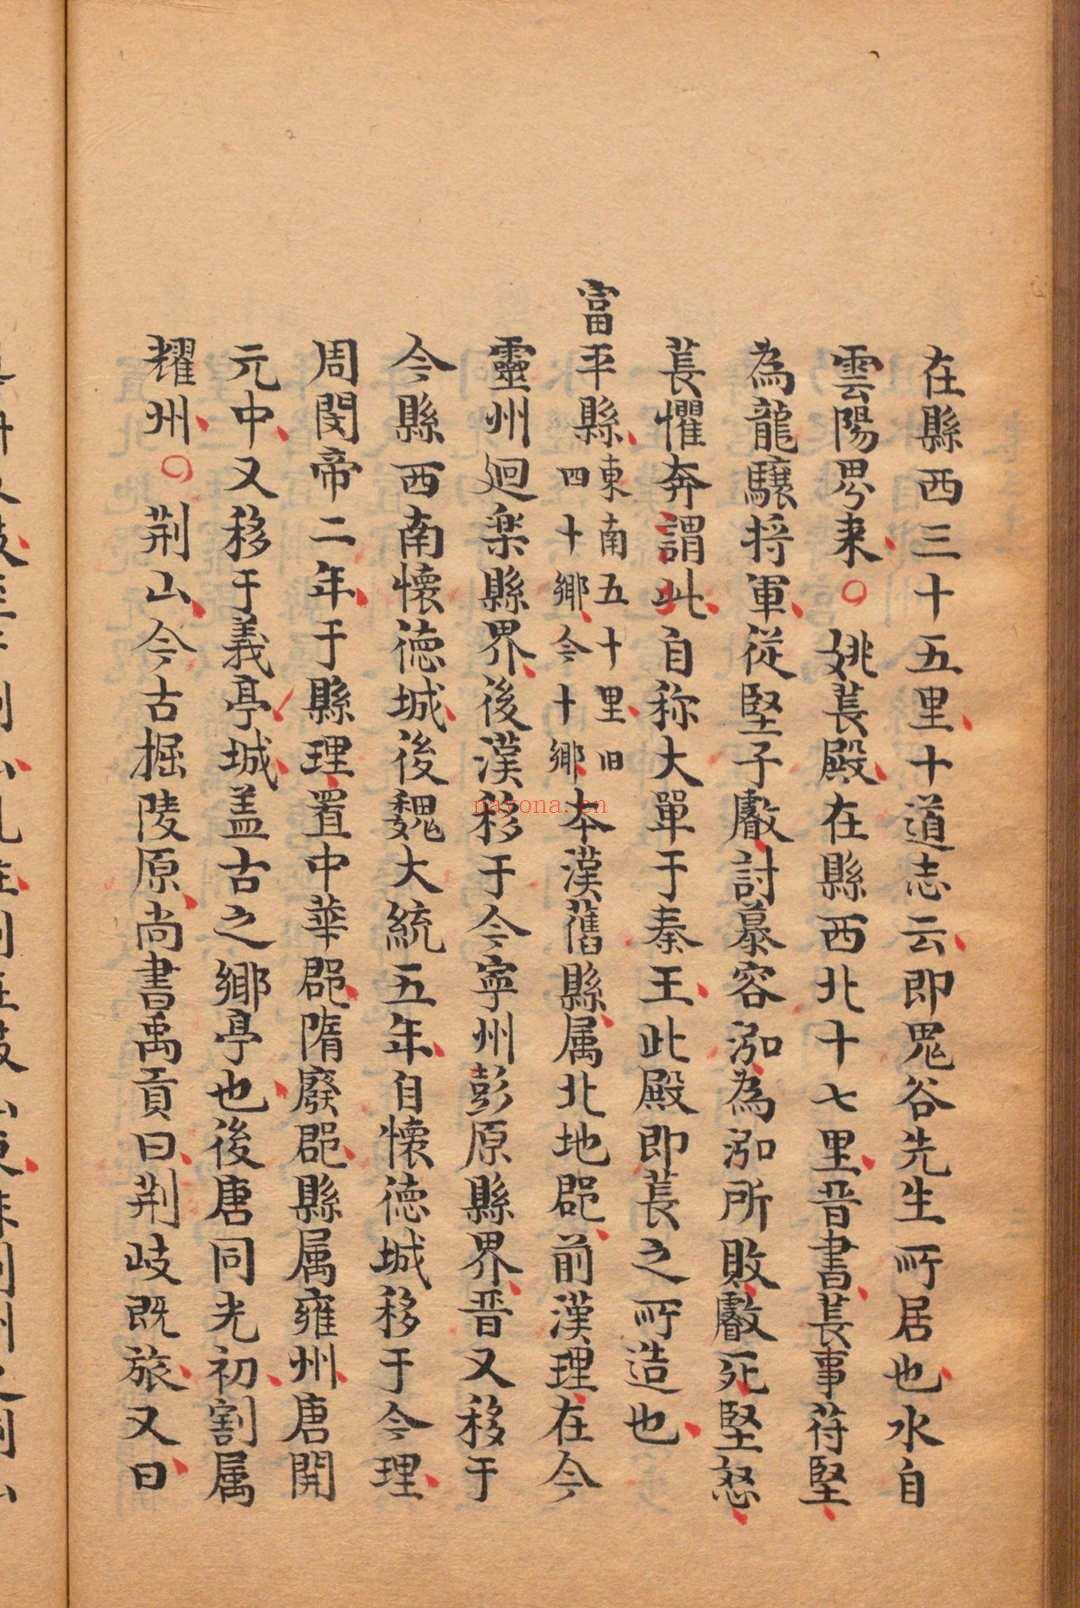 在縣西三十五里十道志云即鬼谷先生所居也水自
雲陽界来○姚萇殿在縣西北十七里晉書萇事苻堅
為龍驤将軍從堅子叡討慕容泓為泓所敗叡死堅怒
萇懼奔謂此自称大單于秦王此殿即萇之所造也
富平縣東南五十里旧四十鄉今十鄉本漢舊縣属北地郡前漢理在今
靈州迴楽縣界後漢移于今寧州彭原縣界晋又移于
今縣西南懷德城後魏大統五年自懷德城移于今理
周閔帝二年于縣理置中華郡隋廢郡縣属雍州唐開
元中又移于義亭城盖古之鄉亭也後唐同光初割属
耀州○荆山今古掘陵原尚書禹貢曰荆岐既旅又曰
nayona.cn